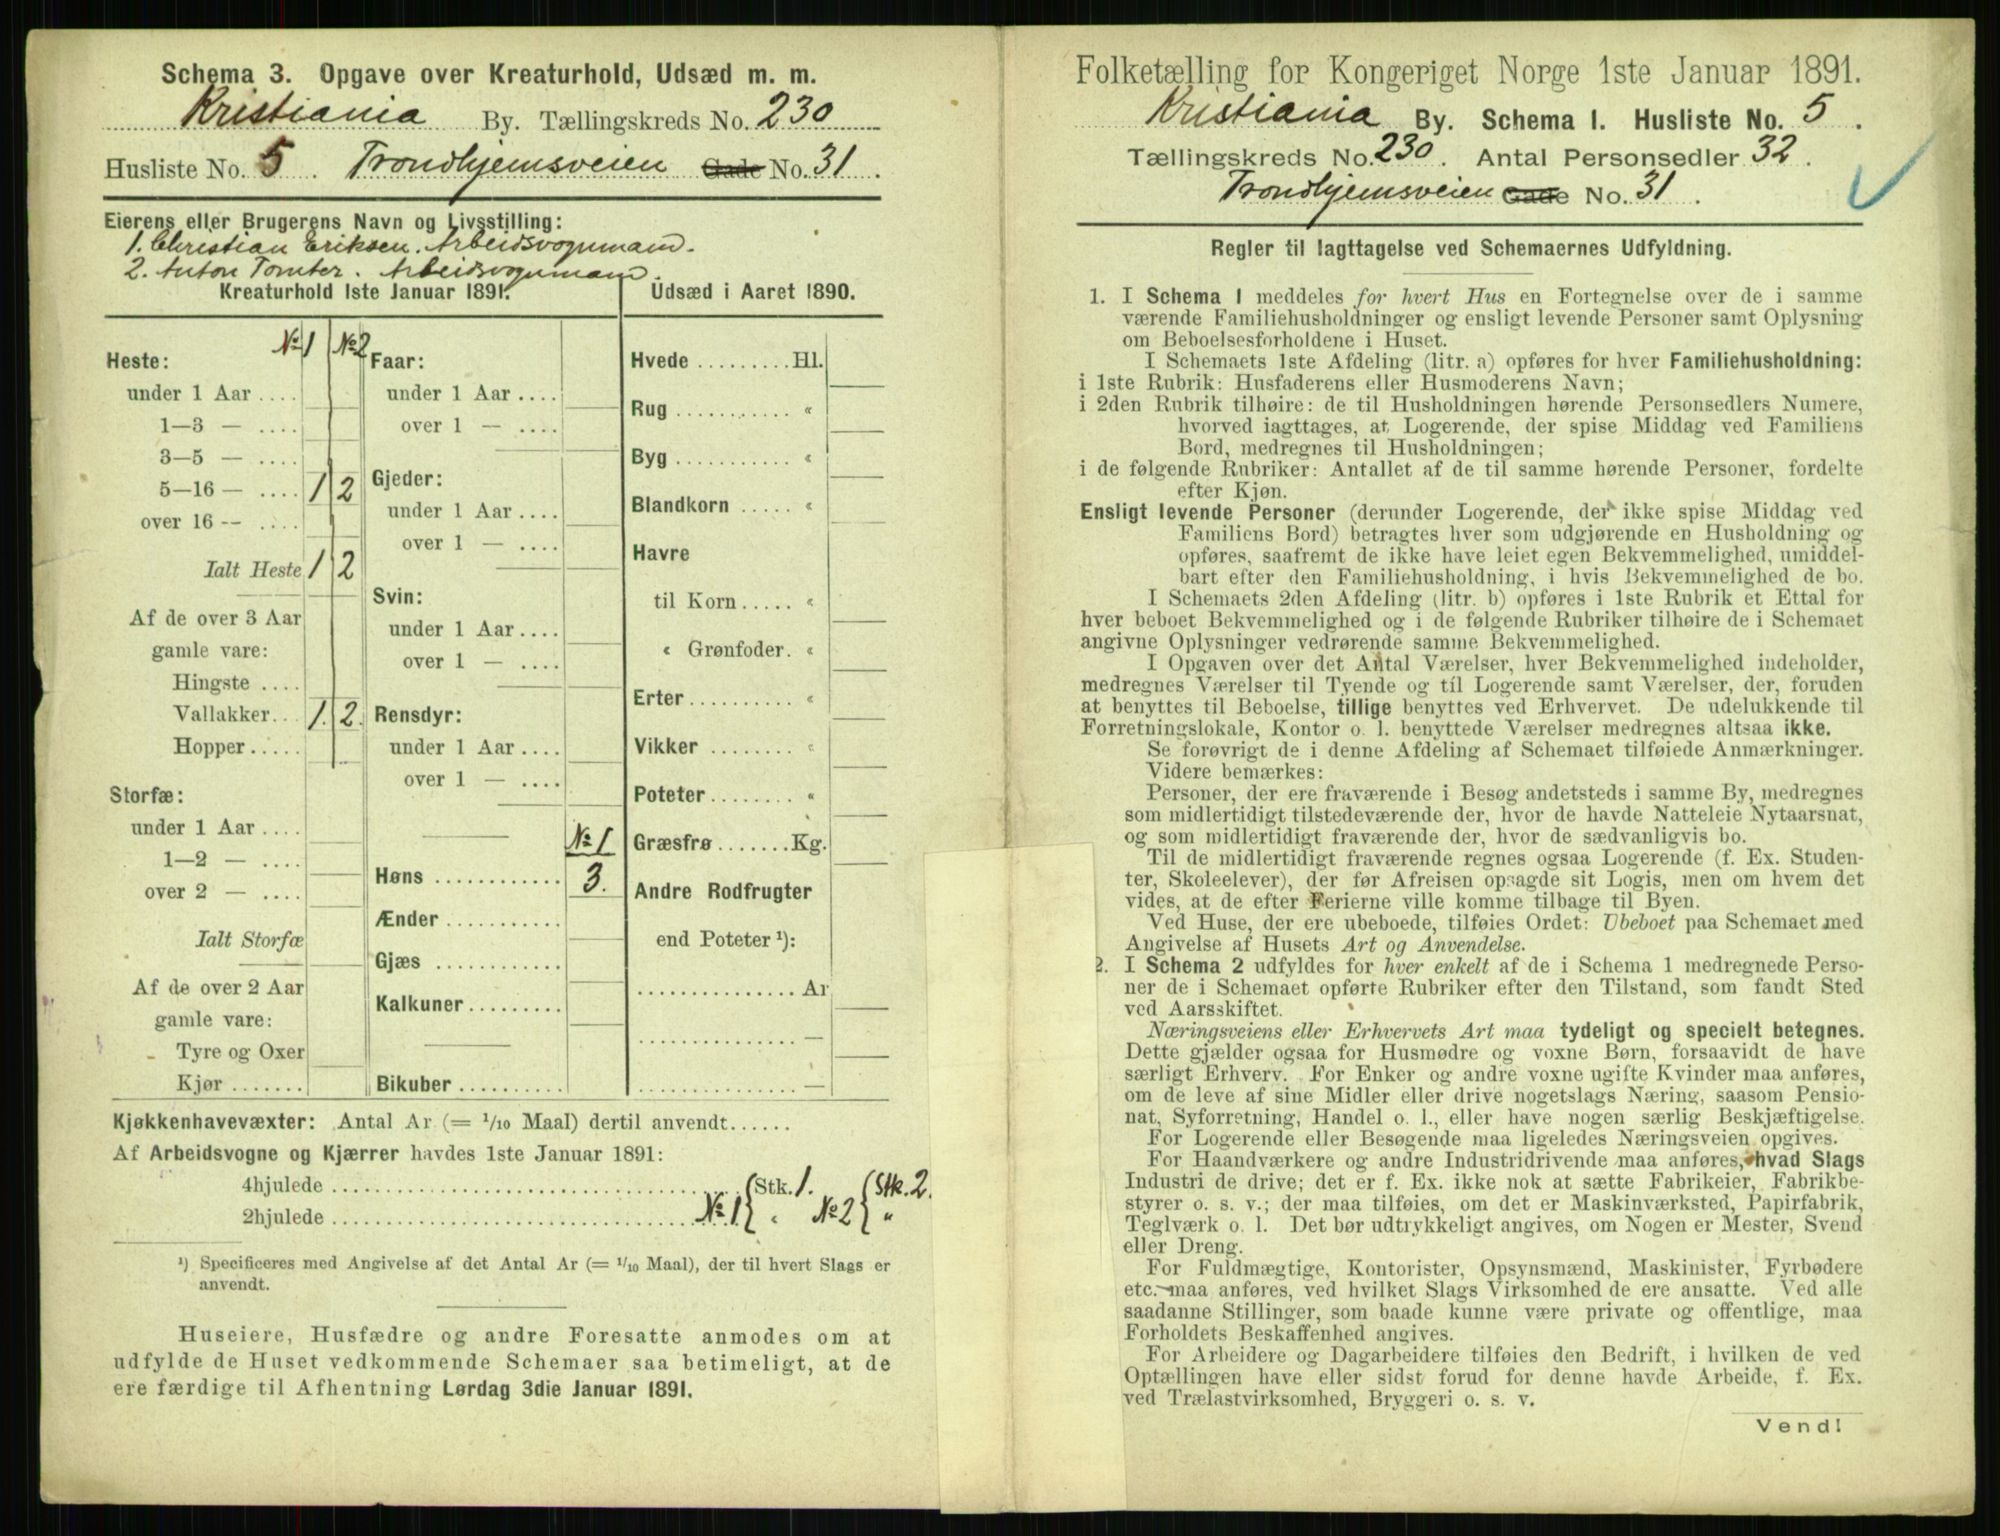 Schema 3. Opgave over Kreaturhold, Udsæd m. m.
Kristiania By. Tællingskreds No. 230
Husliste No. 5. Trondhjemsveien Gade No. 31.
Eierens eller Brugerens Navn og Livsstilling:
1. Christian Eriksen. Arbeidsvognmand.
2. Anton Tomter. Arbeidsvognmand.
Kreaturhold 1ste Januar 1891.
№ 1 № 2
Heste:
under 1 Aar ....
1—3 — ....
3—5 — ....
5—16 — .... 1 2
over 16 — ....
Ialt Heste 1 2
Af de over 3 Aar
gamle vare:
Hingste ....
Vallakker... 1. 2.
Hopper .....
Storfæ:
under 1 Aar ....
1—2 — ....
over 2 — ....
Ialt Storfæ
Af de over 2 Aar
gamle vare:
Tyre og Oxer
Kjør .......
Faar:
under 1 Aar ....
over 1 — ....
Gjeder:
under 1 Aar ....
over 1 — ....
Svin:
under 1 Aar ....
over 1 — ....
Rensdyr:
under 1 Aar ....
over 1 — ....
№ 1
Høns ............ 3.
Ænder ...........
Gjæs ............
Kalkuner .........
Bikuber ..........
Udsæd i Aaret 1890.
Hvede ......... Hl.
Rug ........... «
Byg ........... «
Blandkorn ..... «
Havre
til Korn ..... «
« Grønfoder. «
Erter .......... «
Vikker ........ «
Poteter ........ «
Græsfrø ....... Kg.
Andre Rodfrugter
end Poteter ¹):
............... Ar
............... —
............... —
Kjøkkenhavevæxter: Antal Ar (= 1/10 Maal) dertil anvendt......
Af Arbeidsvogne og Kjærrer havdes 1ste Januar 1891:
4hjulede ........................................ Stk. 1. Stk. 2.
2hjulede ........................................ № 1 « № 2 «
¹) Specificeres med Angivelse af det Antal Ar (= 1/10 Maal), der til hvert Slags er
anvendt.
Huseiere, Husfædre og andre Foresatte anmodes om at
udfylde de Huset vedkommende Schemaer saa betimeligt, at de
ere færdige til Afhentning Lørdag 3die Januar 1891.
Folketælling for Kongeriget Norge 1ste Januar 1891.
Kristiania By. Schema I. Husliste No. 5.
Tællingskreds No. 230. Antal Personsedler 32.
Trondhjemsveien Gade No. 31.
Regler til Iagttagelse ved Schemaernes Udfyldning.
1. I Schema 1 meddeles for hvert Hus en Fortegnelse over de i samme
værende Familiehusholdninger og ensligt levende Personer samt Oplysning
om Beboelsesforholdene i Huset.
I Schemaets 1ste Afdeling (litr. a) opføres for hver Familiehusholdning:
i 1ste Rubrik: Husfaderens eller Husmoderens Navn;
i 2den Rubrik tilhøire: de til Husholdningen hørende Personsedlers Numere,
hvorved iagttages, at Logerende, der spise Middag ved Familiens
Bord, medregnes til Husholdningen;
i de følgende Rubriker: Antallet af de til samme hørende Personer, fordelte
efter Kjøn.
Ensligt levende Personer (derunder Logerende, der ikke spise Middag ved
Familiens Bord) betragtes hver som udgjørende en Husholdning og
opføres, saafremt de ikke have leiet egen Bekvemmelighed, umiddel-
bart efter den Familiehusholdning, i hvis Bekvemmelighed de bo.
I Schemaets 2den Afdeling (litr. b) opføres i 1ste Rubrik et Ettal for
hver beboet Bekvemmelighed og i de følgende Rubriker tilhøire de i Schemaet
angivne Oplysninger vedrørende samme Bekvemmelighed.
I Opgaven over det Antal Værelser, hver Bekvemmelighed indeholder,
medregnes Værelser til Tyende og til Logerende samt Værelser, der, foruden
at benyttes til Beboelse, tillige benyttes ved Erhvervet. De udelukkende til
Forretningslokale, Kontor o. l. benyttede Værelser medregnes altsaa ikke.
Se forøvrigt de i denne Afdeling af Schemaet tilføiede Anmærkninger.
Videre bemærkes:
Personer, der ere fraværende i Besøg andetsteds i samme By, medregnes
som midlertidigt tilstedeværende der, hvor de havde Natteleie Nytaarsnat,
og som midlertidigt fraværende der, hvor de sædvanligvis bo.
Til de midlertidigt fraværende regnes ogsaa Logerende (f. Ex. Studen-
ter, Skoleelever), der før Afreisen opsagde sit Logis, men om hvem det
vides, at de efter Ferierne ville komme tilbage til Byen.
Ved Huse, der ere ubeboede, tilføies Ordet: Ubeboet paa Schemaet med
Angivelse af Husets Art og Anvendelse.
2. I Schema 2 udfyldes for hver enkelt af de i Schema 1 medregnede Perso-
ner de i Schemaet opførte Rubriker efter den Tilstand, som fandt Sted
ved Aarsskiftet.
Næringsveiens eller Erhvervets Art maa tydeligt og specielt betegnes.
Dette gjælder ogsaa for Husmødre og voxne Børn, forsaavidt de have
særligt Erhverv. For Enker og andre voxne ugifte Kvinder maa anføres,
om de leve af sine Midler eller drive nogetslags Næring, saasom Pensio-
nat, Syforretning, Handel o. l., eller have nogen særlig Beskjæftigelse.
For Logerende eller Besøgende maa ligeledes Næringsveien opgives.
For Haandværkere og andre Industridrivende maa anføres, hvad Slags
Industri de drive; det er f. Ex. ikke nok at sætte Fabrikeier, Fabrikbe-
styrer o. s. v.; der maa tilføies, om det er Maskinværksted, Papirfabrik,
Teglværk o. l. Det bør udtrykkeligt angives, om Nogen er Mester, Svend
eller Dreng.
For Fuldmægtige, Kontorister, Opsynsmænd, Maskinister, Fyrbødere
etc. maa anføres, ved hvilket Slags Virksomhed de ere ansatte. Ved alle
saadanne Stillinger, som baade kunne være private og offentlige, maa
Forholdets Beskaffenhed angives.
For Arbeidere og Dagarbeidere tilføies den Bedrift, i hvilken de ved
Optællingen have eller sidst forud for denne havde Arbeide, f. Ex.
ved Trælastvirksomhed, Bryggeri o. s. v.
Vend!